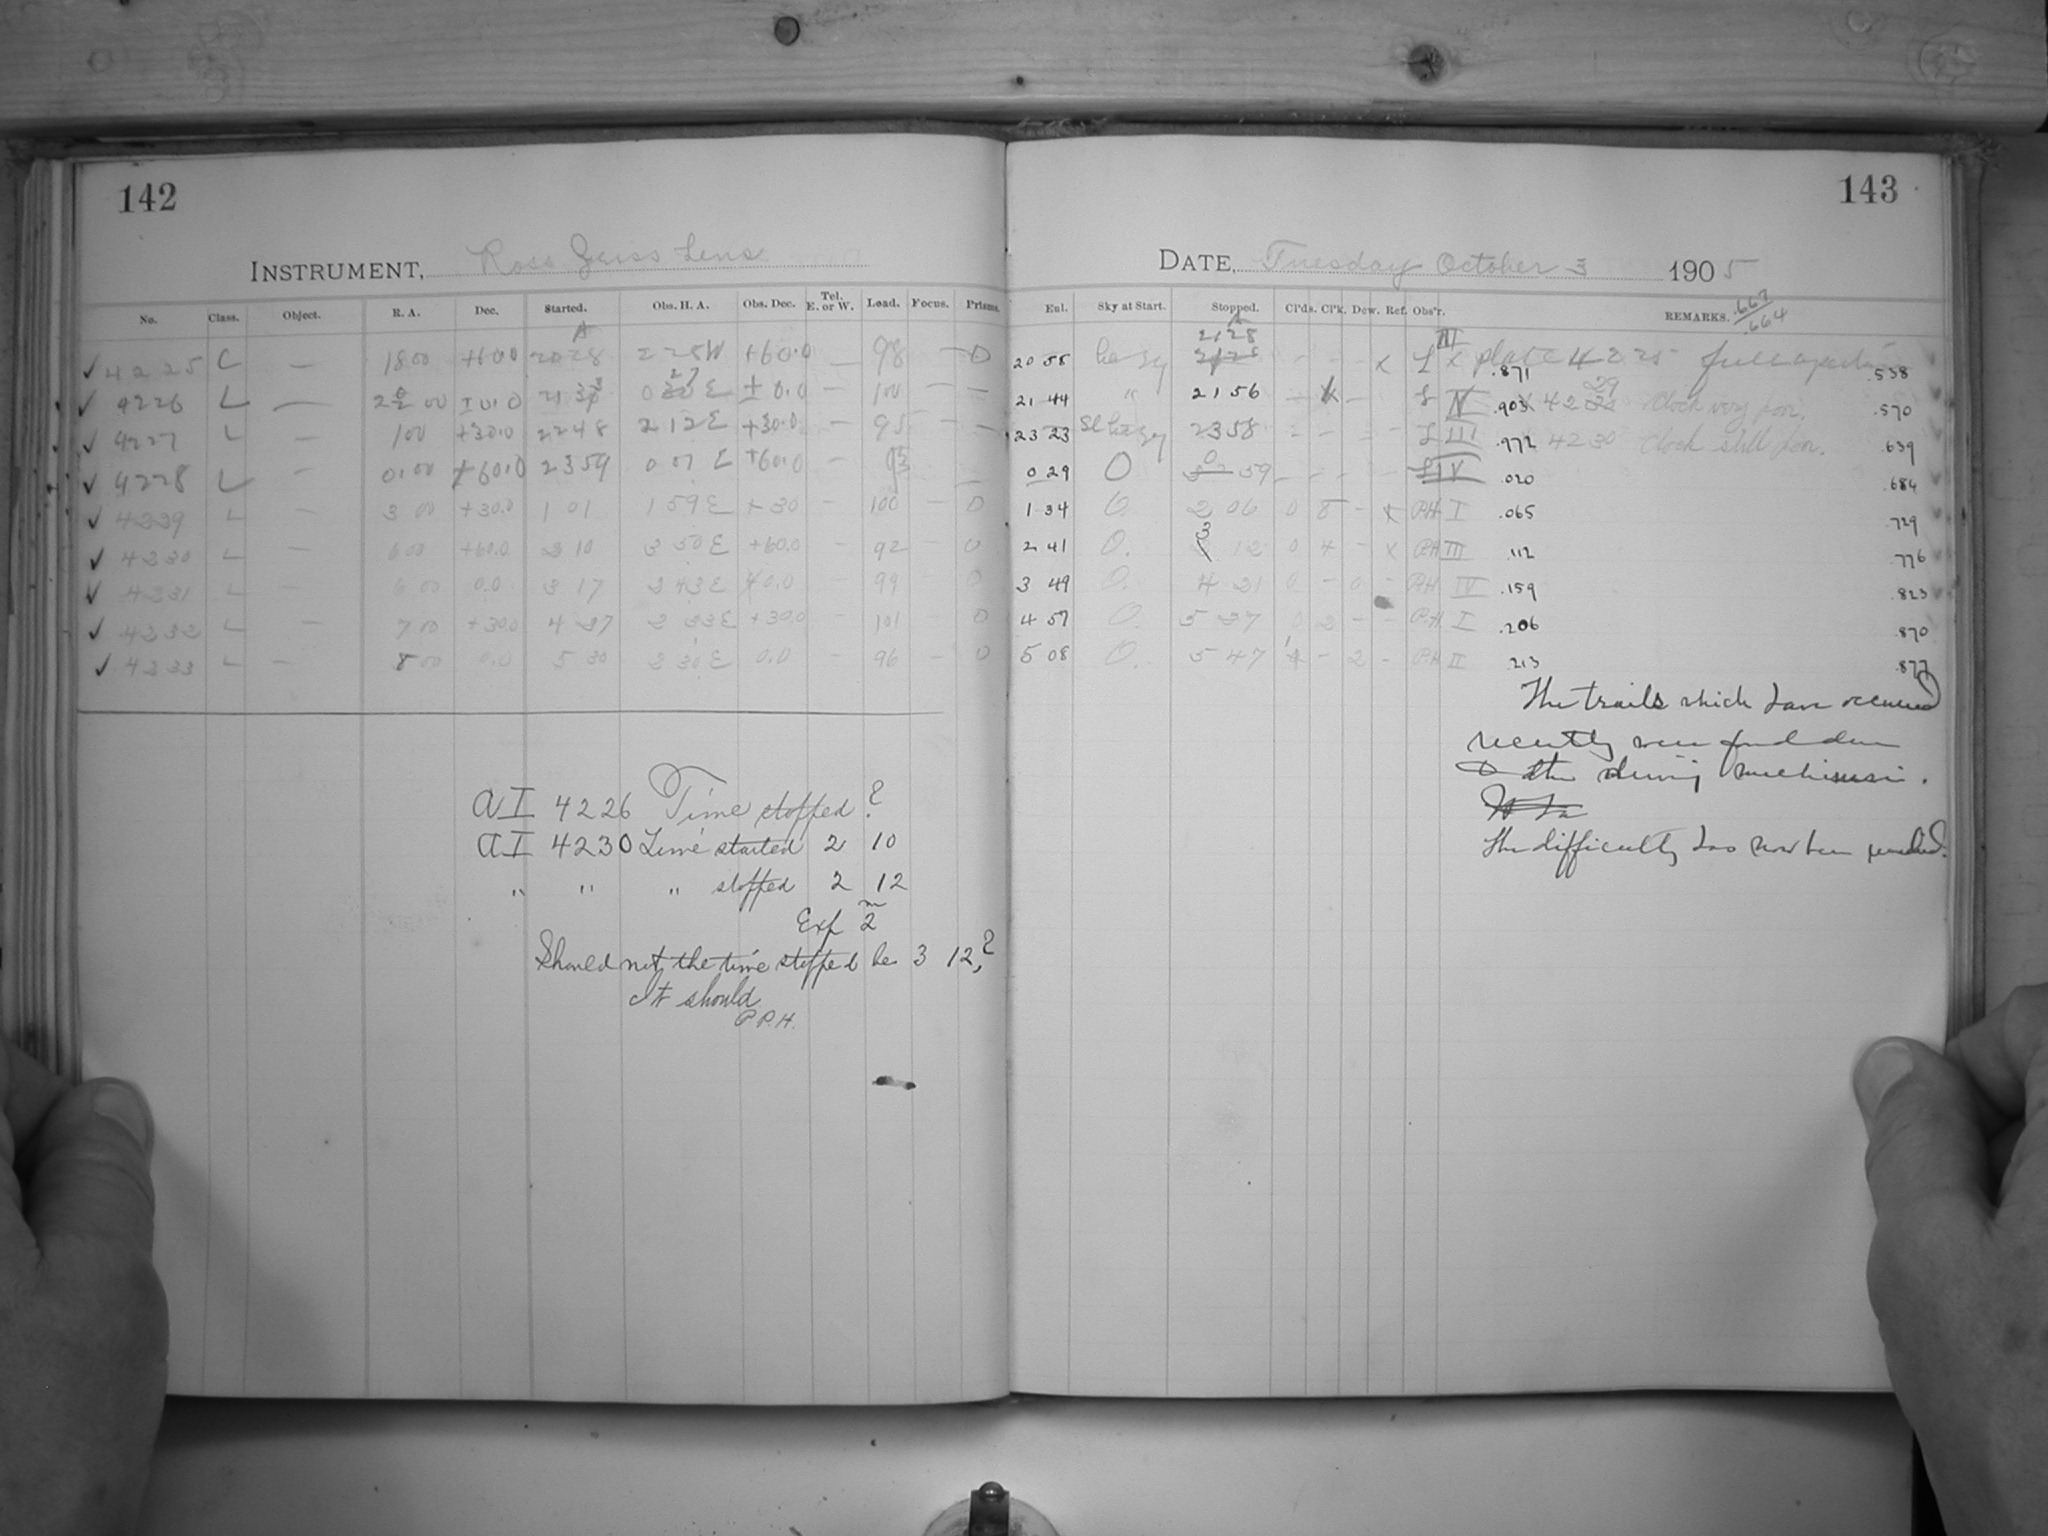 142
143
INSTRUMENT, Ross Zeiss Lens
DATE, Tuesday October 3 1905
No. Class. Object. R. A. Dec. Started. Obs. H. A. Obs. Dec. Tel. E. or W. Load. Focus. Prisms. Eul. Sky at Start. Stopped. Cl'ds. Cl'k. Dew. Ref. Obs'r. REMARKS. .663 .664
✓ 4225 C — 18 00 +60.0 20 28 2 28 W +60.0 — 98 — 0 20 55 hazy 21 28 - - - x L III x plate 4225 full aperture .871 .538
✓ 4226 L — 00 ±0.0 0 27 E ±0.0 — 100 — — 21 44 " 21 56 L IV .903 x 4229 Clock very poor. .570
✓ 4227 L 1 00 +30.0 22 48 2 12 E +30.0 — 95 — — 23 23 Sl hazy 23 58 - - - - L III .972 x 4230 Clock still poor. .639
✓ 4228 L 0.00 +60.0 23 59 0 07 E +60.0 — — 0 29 O 0 59 - - - - L IV .020 .684
✓ 4339 L — 3 00 +30.0 1 01 1 59 E +30 — 100 — 0 1 34 O 2 06 0 8 - x PH I .065 .729
✓ 4330 L — 6 00 +60.0 2 10 3 50 E +60.0 — 92 — 0 2 41 O. 3 12 0 4 - x PH III .112 .776
✓ 4331 L — 6 00 0.0 3 17 2 43 E 0.0 — 99 0 3 49 O. 4 21 0 - 0 - PH IV .159 .823
✓ 4332 L — 7 00 +30.0 4 27 2 33 E +30.0 — 101 0 4 57 O. 5 27 0 2 - - PH I .206 .870
✓ 4333 L — 8 00 0.0 5 30 2 30 E 0.0 — 96 — 0 5 08 O. 5 47 1 - 2 - PH II .213 .877
The trails which have occurred
recently were found due
to the driving mechanism.
The difficulty has now been remedied.
AI 4226 Time stopped?
AI 4230 Time started 2 10
" " " stopped 2 12
Exp 2m
Should not the time stopped be 3 12,?
It should
P.P.H.